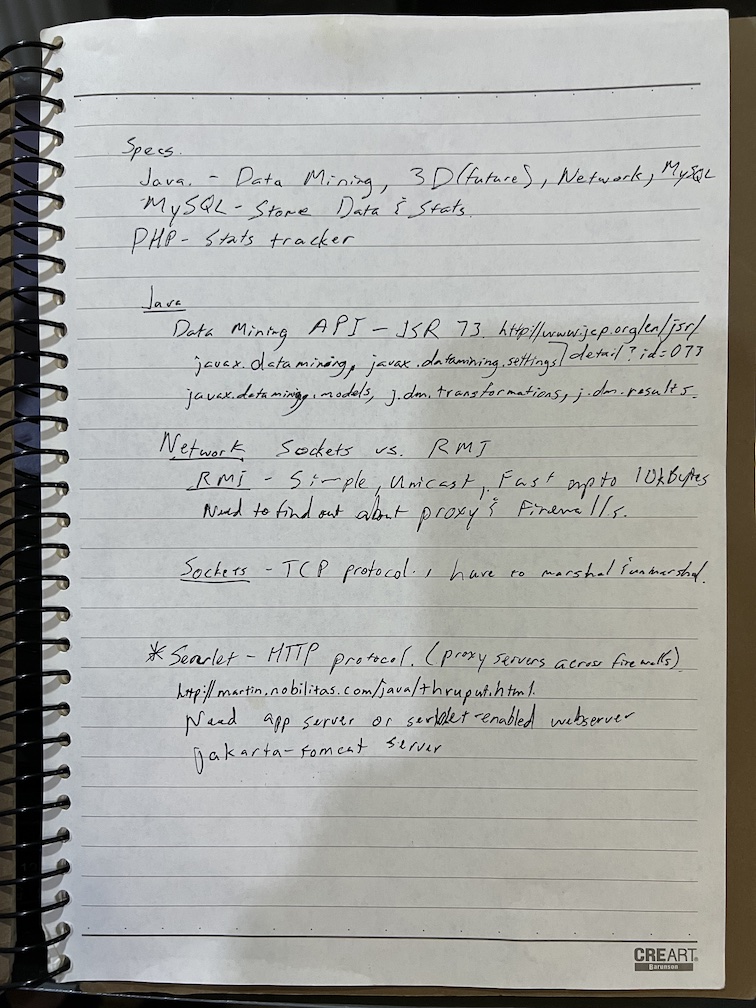 Specs.
Java. - Data Mining, 3D(future), Network, MySQL
MySQL - Store Data & Stats.
PHP - Stats tracker
Java
Data Mining API - JSR 73. http://www.jcp.org/en/jsr/
javax.datamining, javax.datamining.settings] detail?id=073
javax.datamining.models, j.dm.transformations, j.dm.results.
Network Sockets vs. RMI
RMI - Simple, Unicast, Fast up to 10kBytes
Need to find out about proxy & Firewalls.
Sockets - TCP protocol., have to marshal & unmarshal.
*Servlet - HTTP protocol. (proxy servers across firewalls)
http://martin.nobilitas.com/java/thruput.html.
Need app server or servlet-enabled webserver
jakarta-tomcat server
CREART
Barunson